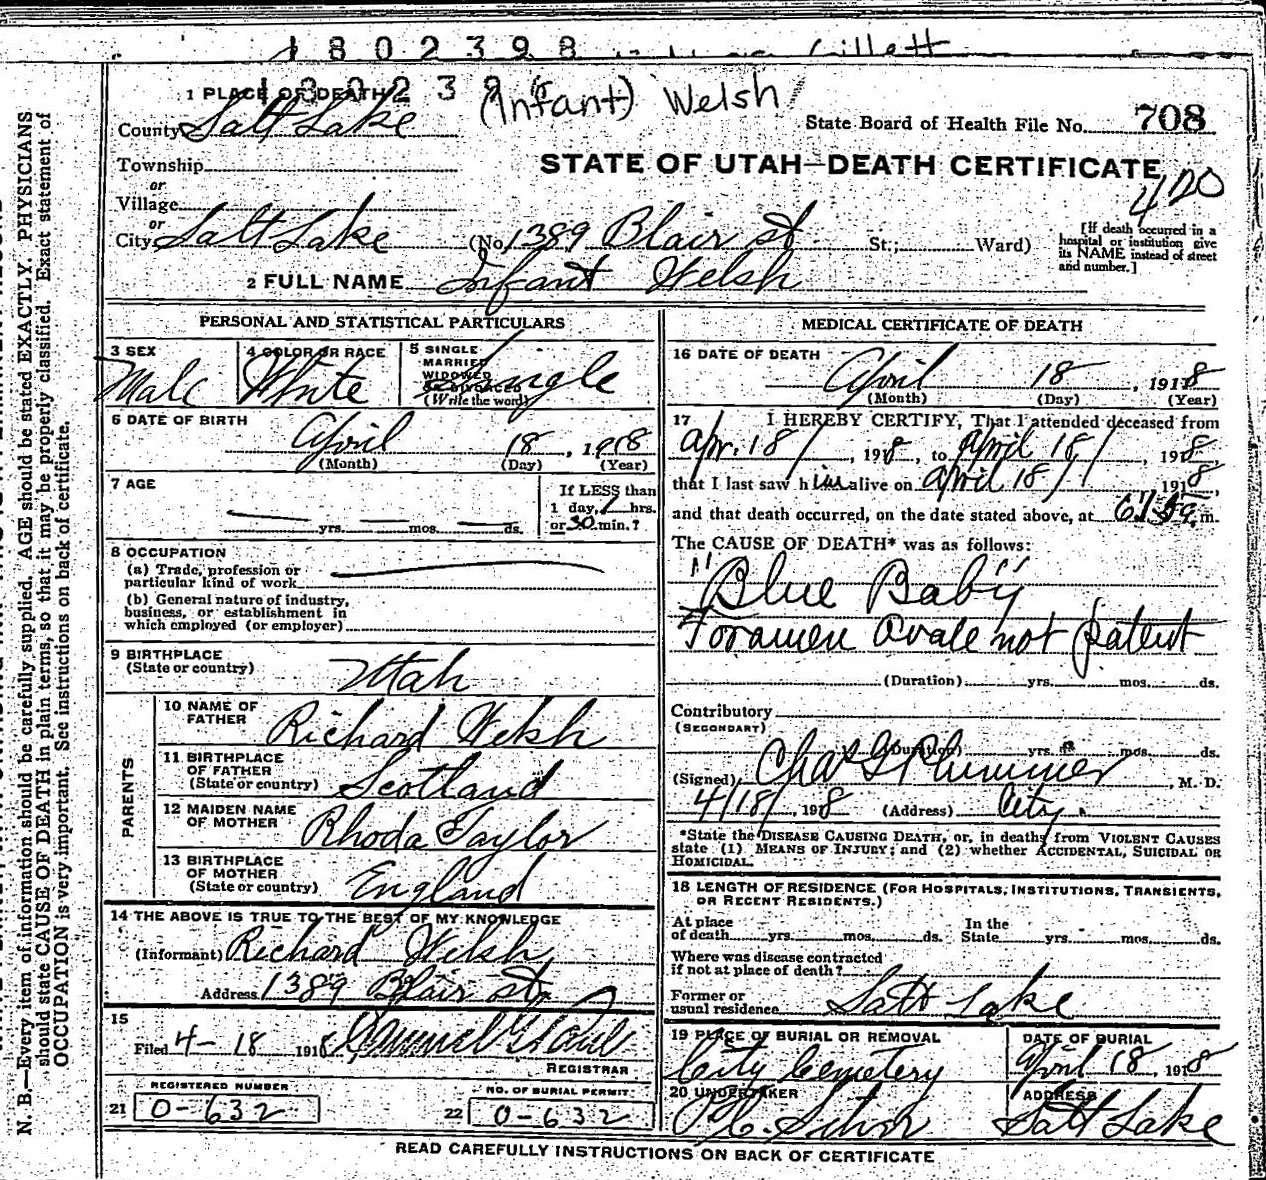 1802398 Gillett
(Infant) Welsh
1 PLACE OF DEATH
County Salt Lake
State Board of Health File No. 708
STATE OF UTAH—DEATH CERTIFICATE
420
Township
or
Village
or
City Salt Lake (No. 1389 Blair st. St.; Ward)
[If death occurred in a
hospital or institution give
its NAME instead of street
and number.]
2 FULL NAME Infant Welsh
PERSONAL AND STATISTICAL PARTICULARS
3 SEX
Male
4 COLOR OR RACE
White
5 SINGLE
MARRIED
WIDOWED
OR DIVORCED
(Write the word)
Single
6 DATE OF BIRTH
April 18, 1918
(Month) (Day) (Year)
7 AGE
yrs. mos. ds.
If LESS than
1 day, 1 hrs.
or 30 min.?
8 OCCUPATION
(a) Trade, profession or
particular kind of work
(b) General nature of industry,
business, or establishment in
which employed (or employer)
9 BIRTHPLACE
(State or country)
Utah
PARENTS
10 NAME OF
FATHER
Richard Welsh
11 BIRTHPLACE
OF FATHER
(State or country)
Scotland
12 MAIDEN NAME
OF MOTHER
Rhoda Taylor
13 BIRTHPLACE
OF MOTHER
(State or country)
England
14 THE ABOVE IS TRUE TO THE BEST OF MY KNOWLEDGE
(Informant) Richard Welsh
Address 1389 Blair st.
15
Filed 4-18 1918 Samuel G. Paul
REGISTRAR
REGISTERED NUMBER
21 0-632
NO. OF BURIAL PERMIT
22 0-632
MEDICAL CERTIFICATE OF DEATH
16 DATE OF DEATH
April 18, 1918
(Month) (Day) (Year)
17 I HEREBY CERTIFY, That I attended deceased from
Apr. 18, 1918, to April 18, 1918
that I last saw him alive on April 18, 1918,
and that death occurred, on the date stated above, at m.
The CAUSE OF DEATH* was as follows:
"Blue Baby"
Foramen Ovale not patent
(Duration) yrs. mos. ds.
Contributory
(SECONDARY)
(Duration) yrs. mos. ds.
(Signed) Chas G Plummer, M. D.
4/18, 1918 (Address) City.
*State the DISEASE CAUSING DEATH, or, in deaths from VIOLENT CAUSES
state (1) MEANS OF INJURY; and (2) whether ACCIDENTAL, SUICIDAL OR
HOMICIDAL.
18 LENGTH OF RESIDENCE (FOR HOSPITALS, INSTITUTIONS, TRANSIENTS,
OR RECENT RESIDENTS.)
At place
of death yrs. mos. ds.
In the
State yrs. mos. ds.
Where was disease contracted
if not at place of death?
Former or
usual residence Salt Lake
19 PLACE OF BURIAL OR REMOVAL
City Cemetery
DATE OF BURIAL
April 18, 1918
20 UNDERTAKER
ADDRESS
Salt Lake
READ CAREFULLY INSTRUCTIONS ON BACK OF CERTIFICATE
N. B.—Every item of information should be carefully supplied. AGE should be stated EXACTLY. PHYSICIANS
should state CAUSE OF DEATH in plain terms, so that it may be properly classified. Exact statement of
OCCUPATION is very important. See instructions on back of certificate.